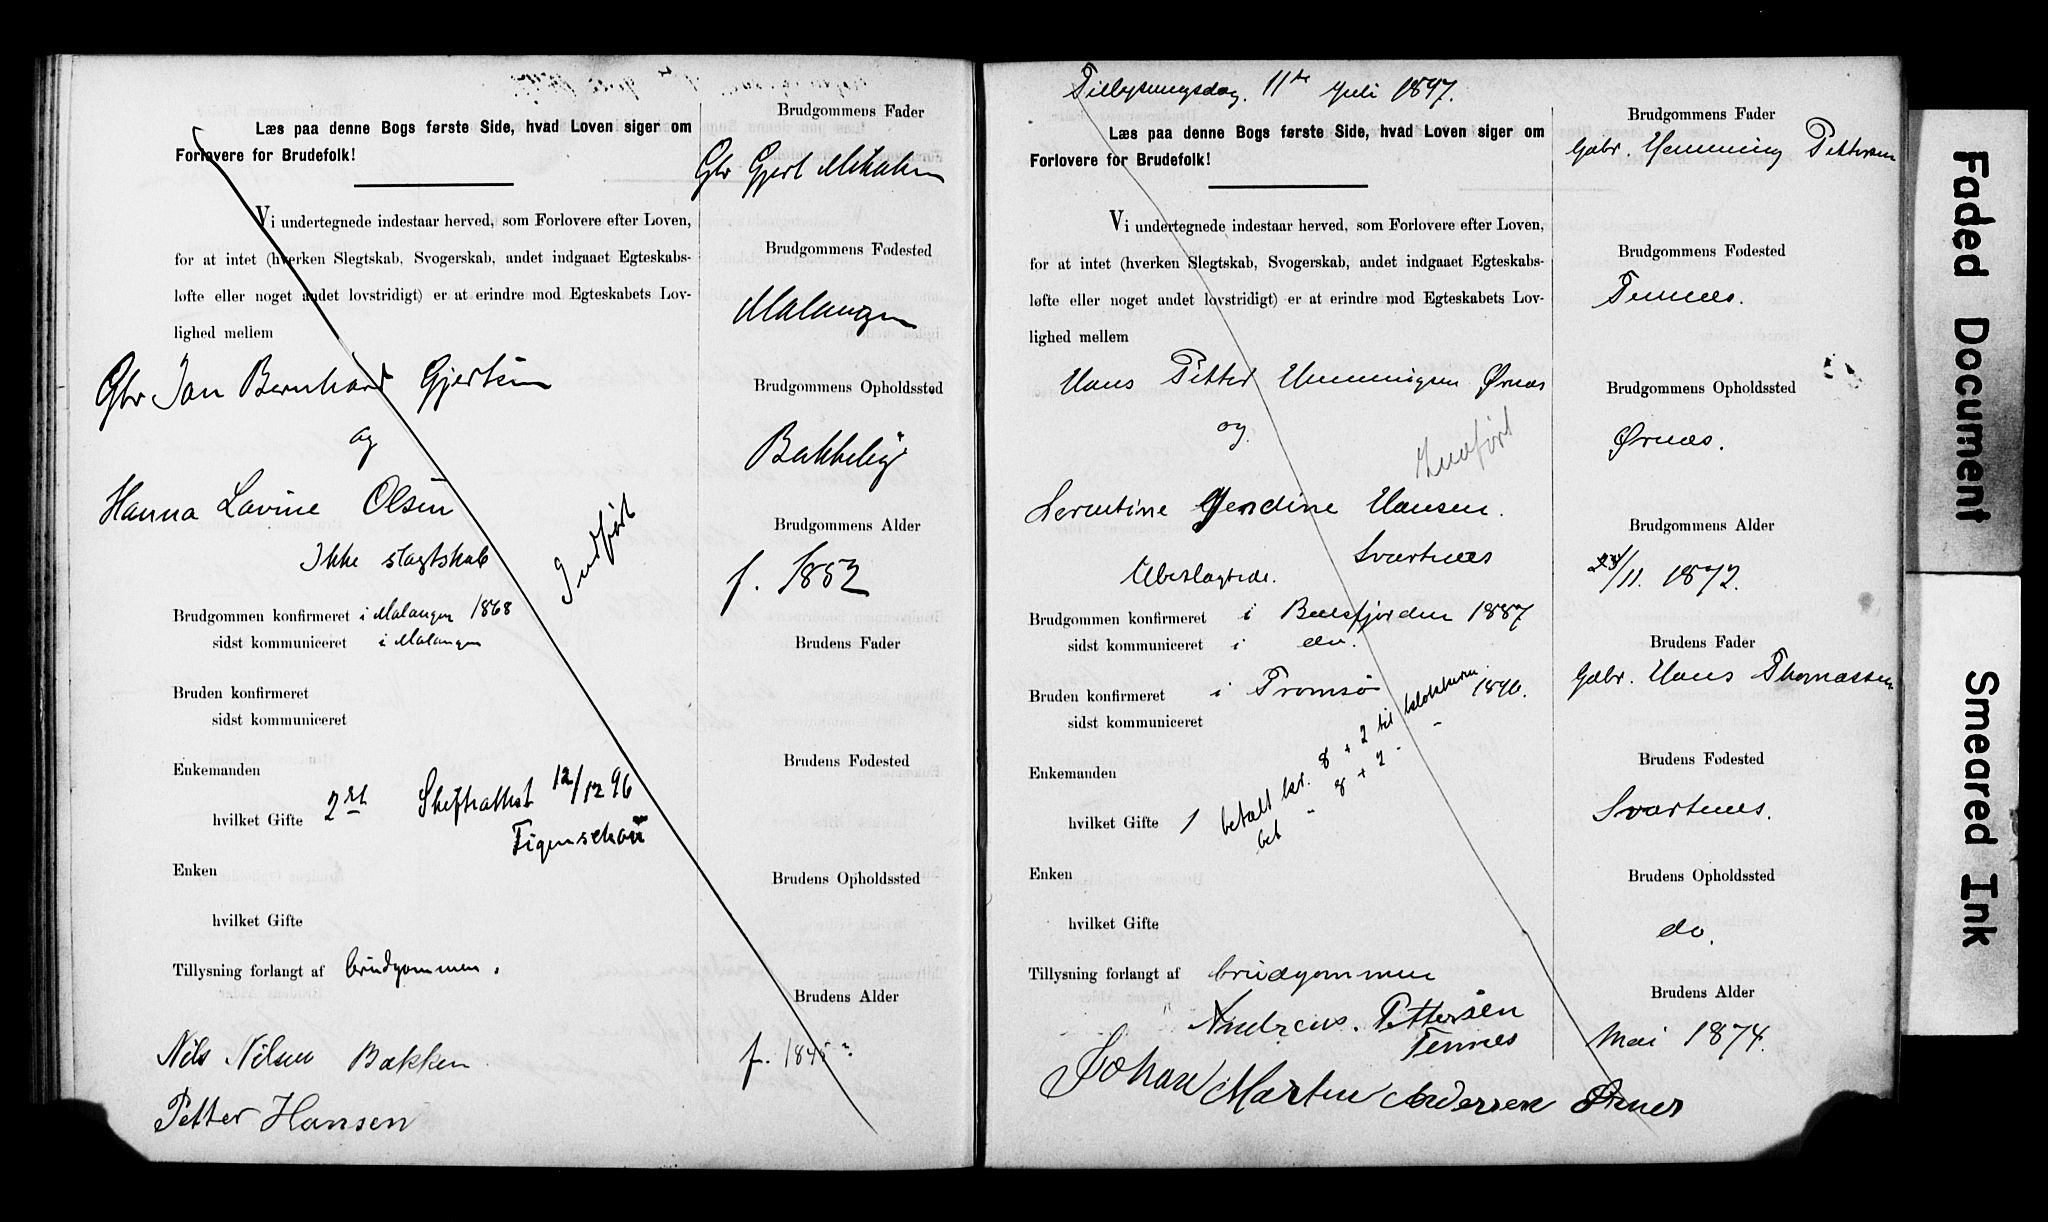 Læs paa denne Bogs første Side, hvad Loven siger om
Forlovere for Brudefolk!
Vi undertegnede indestaar herved, som Forlovere efter Loven,
for at intet (hverken Slegtskab, Svogerskab, andet indgaaet Egteskabs-
løfte eller noget andet lovstridigt) er at erindre mod Egteskabets Lov-
lighed mellem
Gbr Jan Bernhard Gjertsen
og
Hanna Lavine Olsen
Ikke slagtskab
Indført
Brudgommen konfirmeret i Malangen 1868
sidst kommuniceret i Malangen
Bruden konfirmeret
sidst kommuniceret
Enkemanden
hvilket Gifte 2det Skifteattest 12/12 96
Figenschou
Enken
hvilket Gifte
Tillysning forlangt af brudgommen.
Nils Nilsen Bakken
Petter Hansen
Brudgommens Fader
Gbr Gjert Mikalsen
Brudgommens Fødested
Malangen
Brudgommens Opholdssted
Bakkeby
Brudgommens Alder
f. 1852
Brudens Fader
Brudens Fødested
Brudens Opholdssted
Brudens Alder
f. 1845
Tillysningsdag. 11te Juli 1897.
Læs paa denne Bogs første Side, hvad Loven siger om
Forlovere for Brudefolk!
Vi undertegnede indestaar herved, som Forlovere efter Loven,
for at intet (hverken Slegtskab, Svogerskab, andet indgaaet Egteskabs-
løfte eller noget andet lovstridigt) er at erindre mod Egteskabets Lov-
lighed mellem
Hans Petter Hemmingsen Ørnes
og
Indført
Lerentine Gjerdine Hansen.
Svartnes
Ubeslægtede.
Brudgommen konfirmeret i Balsfjorden 1887
sidst kommuniceret i do.
Bruden konfirmeret i Tromsø 1890.
sidst kommuniceret
Enkemanden
hvilket Gifte 1
betalt kr. 8 + 2 til klokkeren
bet " 8 + 2 - -
Enken
hvilket Gifte
Tillysning forlangt af brudgommen
Andreas. Pettersen
Tennes
Johan Martin Andersen Ørnes
Brudgommens Fader
Gbr. Hemming Pettersen
Brudgommens Fødested
Tennes.
Brudgommens Opholdssted
Ørnes.
Brudgommens Alder
/11. 1872.
Brudens Fader
Gbr. Hans Thomassen
Brudens Fødested
Svartnes.
Brudens Opholdssted
do.
Brudens Alder
Mai 1874.
Faded Document
Smeared Ink